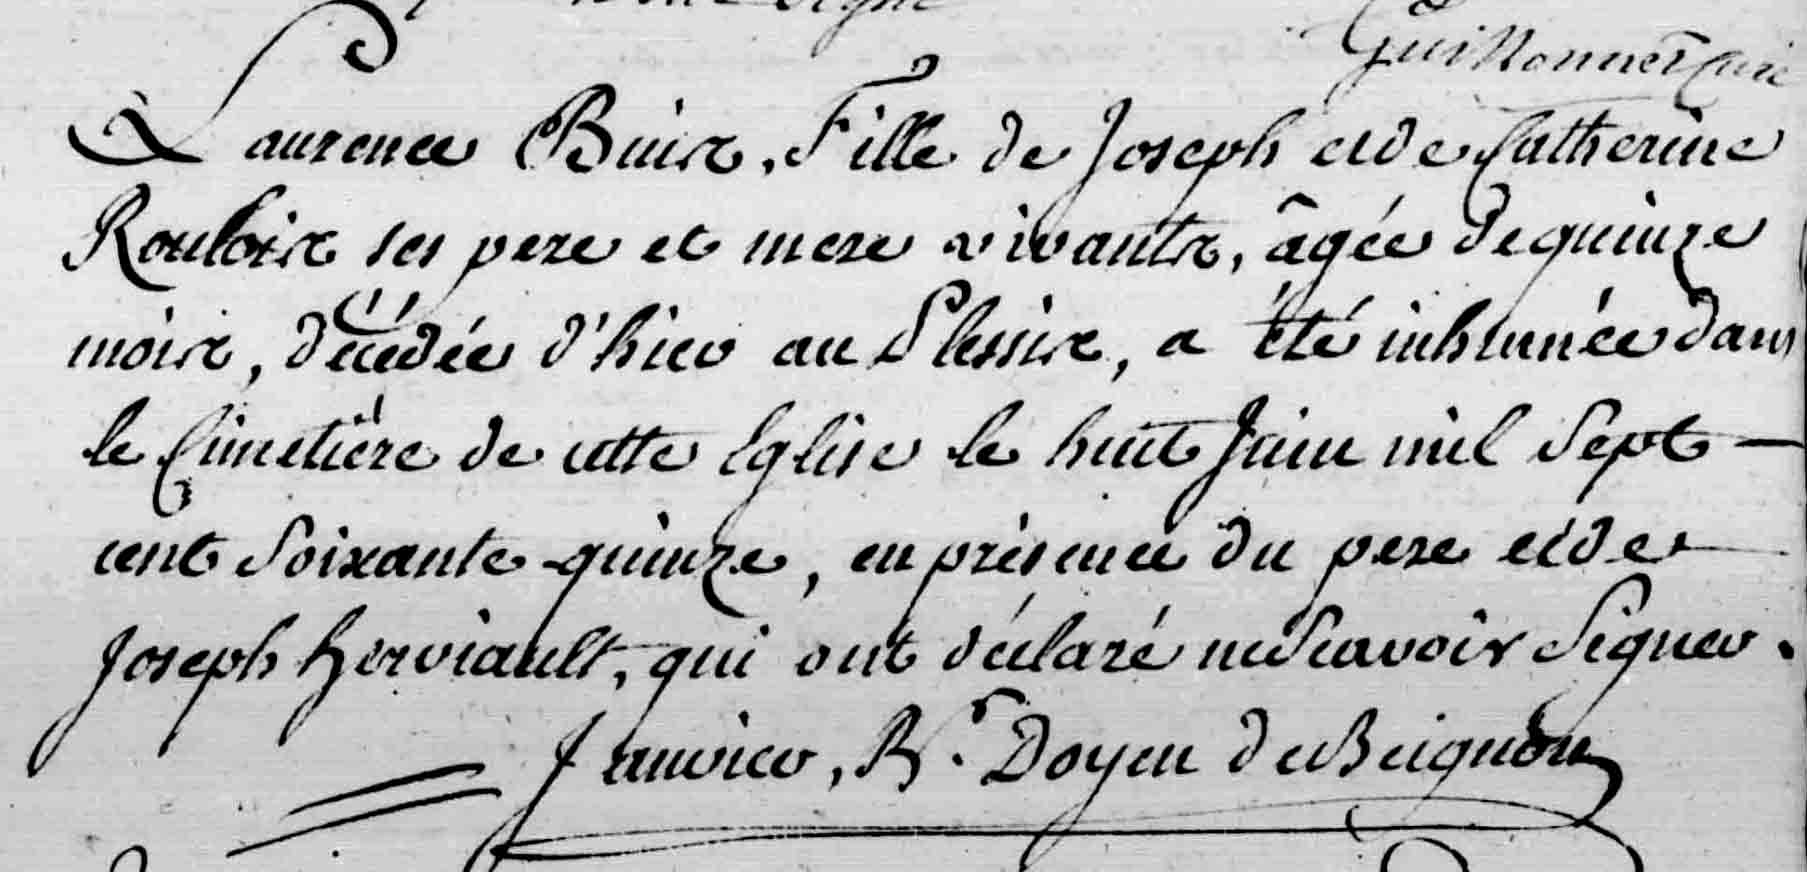 Guillonnet Curé
Laurence Buis, Fille de Joseph et de Catherine
Roulois ses pere et mere vivants, âgée de quinze
mois, décédée d'hier au Plessis, a été inhumée dans
le Cimetière de cette Eglise le huit Juin mil Sept
cent Soixante-quinze, en présence du pere et de
Joseph Herviault, qui ont déclaré ne Scavoir Signer.
Janvier, Rr. Doyen de Beignon